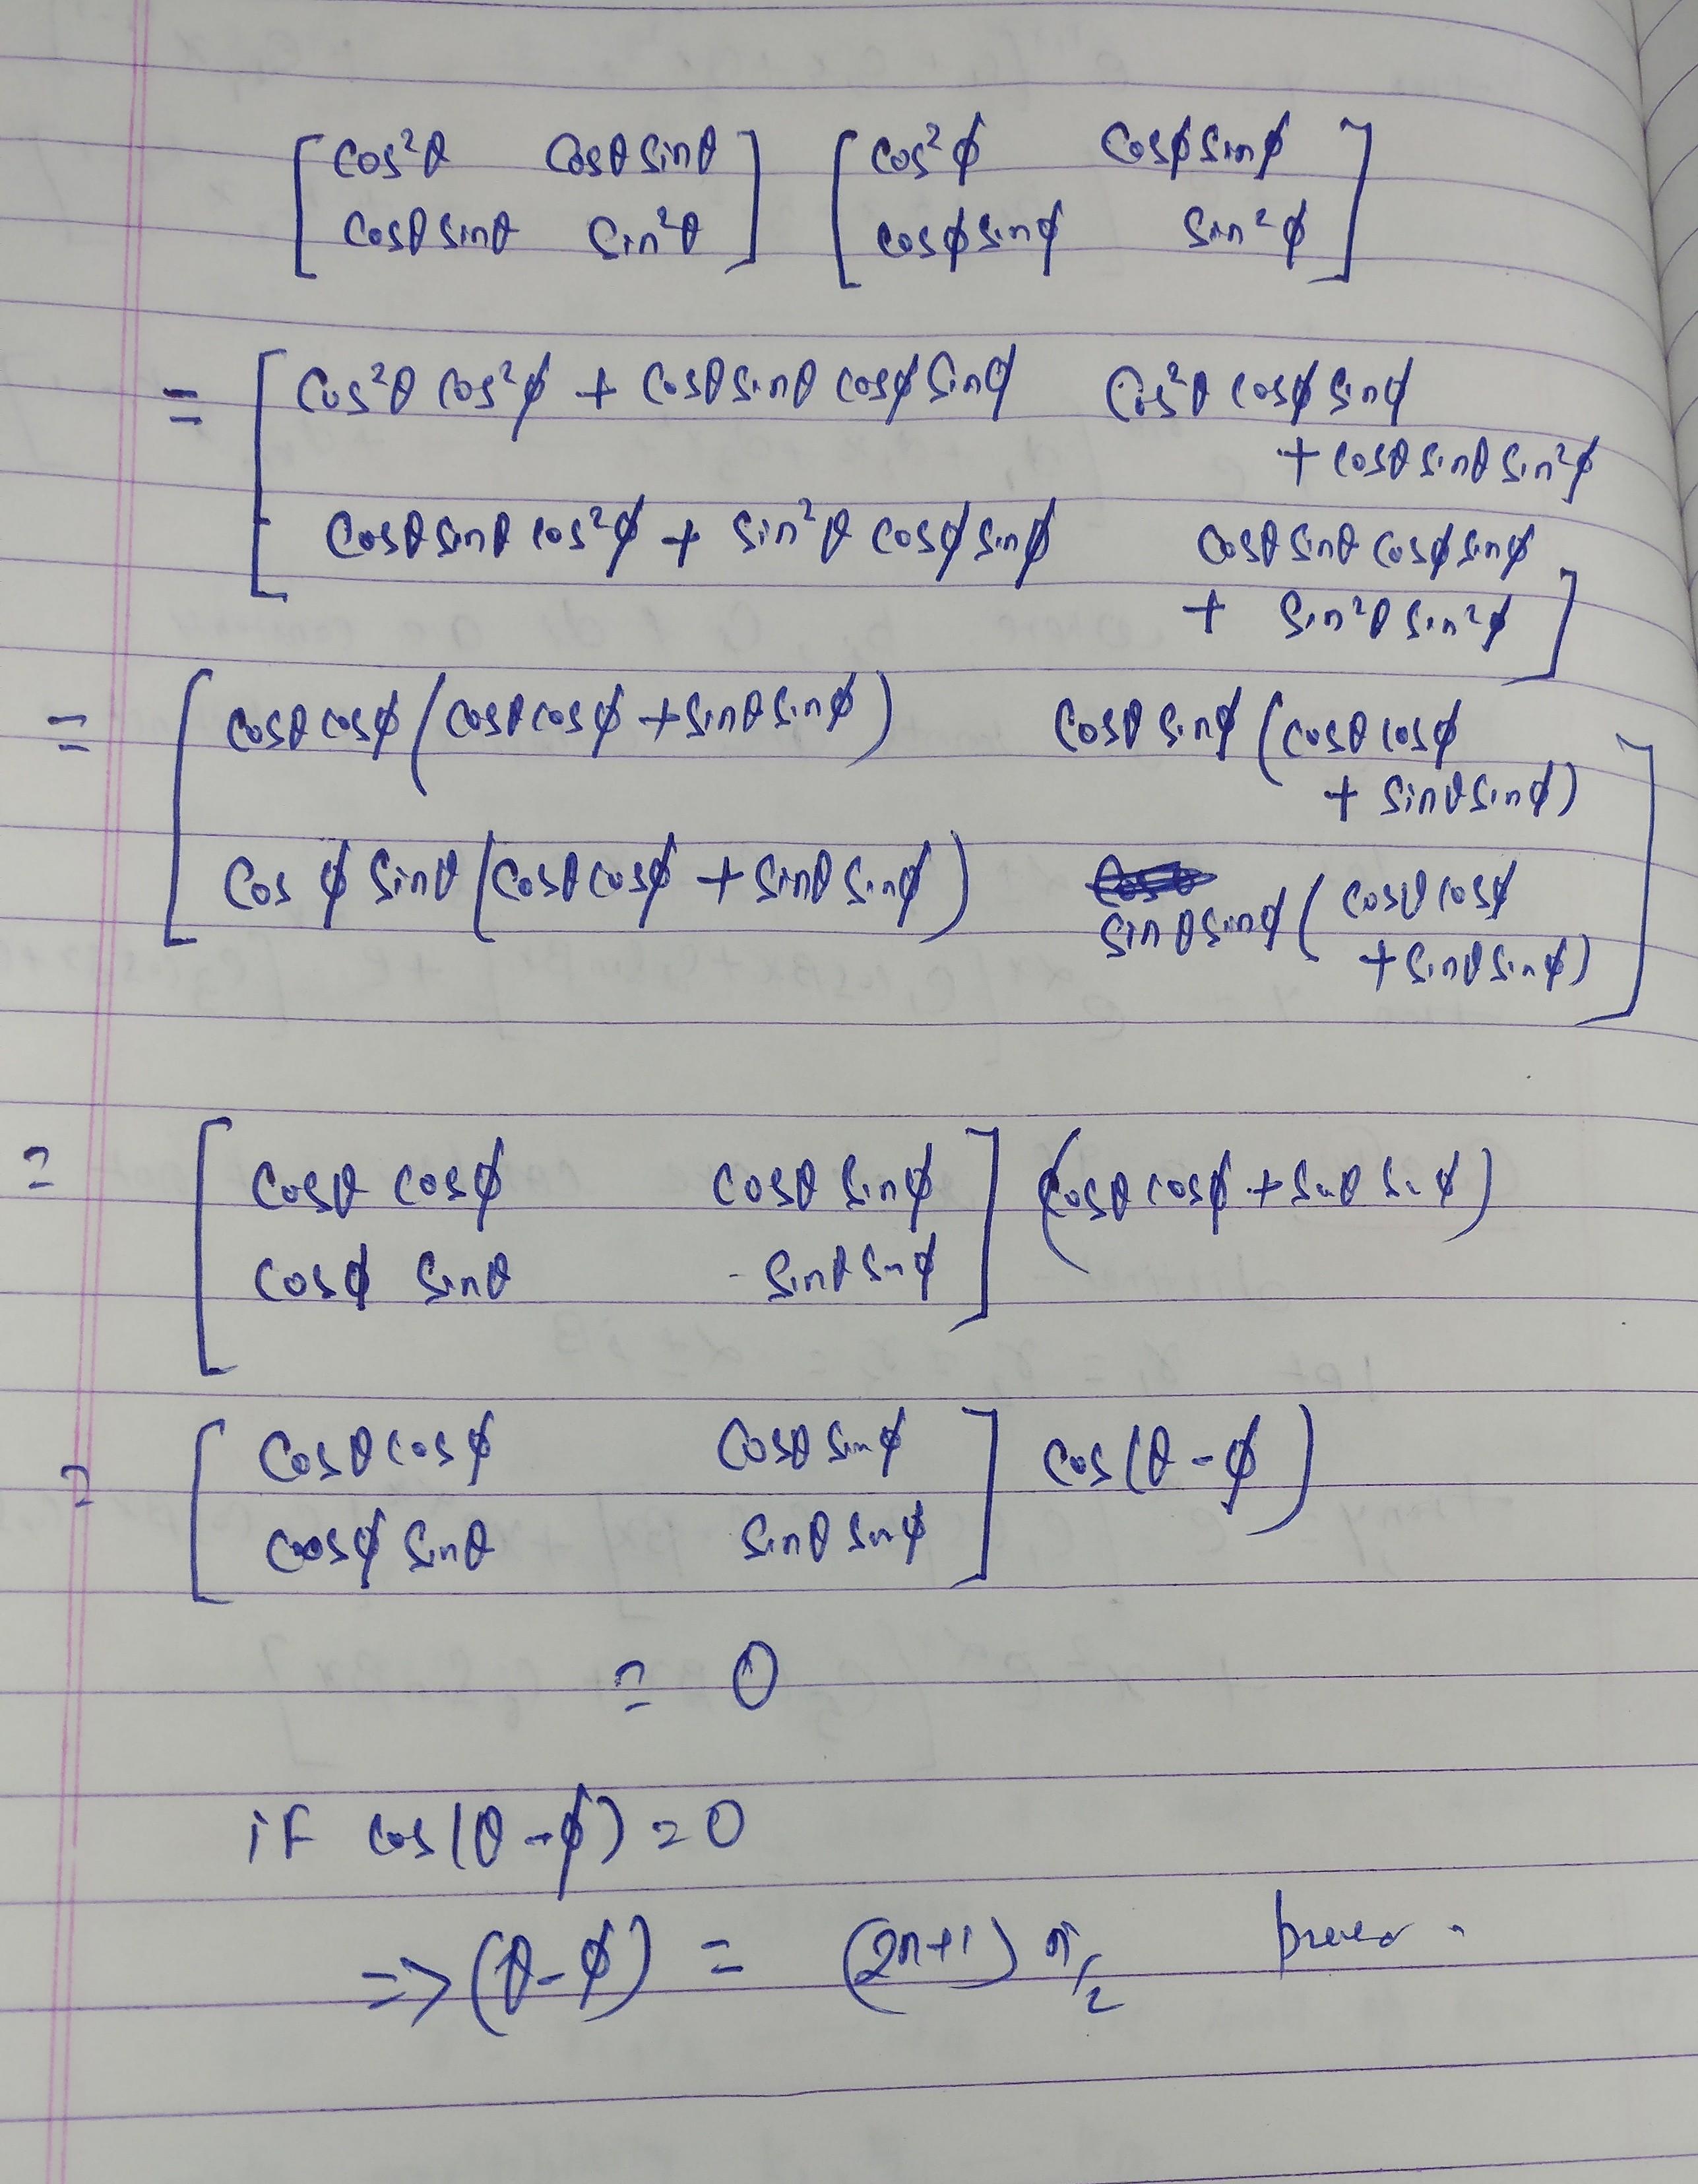 [cos²θ cosθ sinθ] [cos²ϕ cosϕ sinϕ]
[cosθ sinθ sin²θ] [cosϕ sinϕ sin²ϕ]
= [cos²θ cos²ϕ + cosθ sinθ cosϕ sinϕ cos²θ cosϕ sinϕ
+ cosθ sinθ sin²ϕ
cosθ sinθ cos²ϕ + sin²θ cosϕ sinϕ cosθ sinθ cosϕ sinϕ
+ sin²θ sin²ϕ]
= [cosθ cosϕ (cosθ cosϕ + sinθ sinϕ) cosθ sinϕ (cosθ cosϕ
+ sinθ sinϕ)
cos ϕ sinθ (cosθ cosϕ + sinθ sinϕ) sinθ sinϕ (cosθ cosϕ
+ sinθ sinϕ)]
= [cosθ cosϕ cosθ sinϕ] (cosθ cosϕ + sinθ sinϕ)
[cosϕ sinθ sinθ sinϕ]
= [cosθ cosϕ cosθ sinϕ] cos(θ - ϕ)
[cosϕ sinθ sinθ sinϕ]
= 0
if cos(θ - ϕ) = 0
=> (θ - ϕ) = (2n+1) π/2